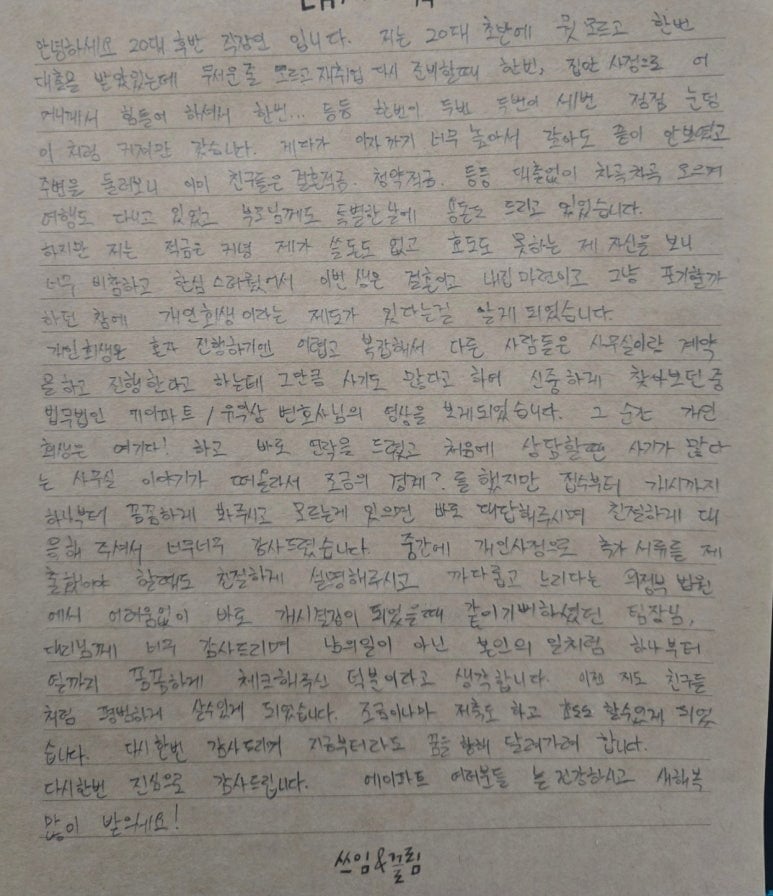 안녕하세요 20대 후반 직장인 입니다. 저는 20대 초반에 뭣 모르고 한번
대출을 받았었는데 무서운줄 모르고 재취업 다시 준비할때 한번, 집안 사정으로 어
머니께서 힘들어 하셔서 한번... 등등 한번이 두번 두번이 세번 점점 눈덩
이 처럼 커져만 갔습니다. 게다가 이자까지 너무 높아서 갚아도 줄이 안보였고
주변을 둘러보니 이미 친구들은 결혼적금. 청약적금. 등등 대출없이 차곡차곡 모으며
여행도 다니고 있었고 부모님께도 특별한 날에 용돈도 드리고 있었습니다.
하지만 저는 적금은 커녕 제가 쓸돈도 없고 효도도 못하는 제 자신을 보니
너무 비참하고 한심스러웠어서 이번 생은 결혼이고 내집 마련이고 그냥 포기할까
하던 참에 개인회생 이라는 제도가 있다는걸 알게 되었습니다.
개인회생은 혼자 진행하기엔 어렵고 복잡해서 다른 사람들은 사무실이랑 계약
을 하고 진행한다고 하는데 그만큼 사기도 많다고 하여 신중하게 찾아보던 중
법무법인 에이파트 / 변호사님의 영상을 보게되었습니다. 그 순간 개인
회생은 여기다! 하고 바로 연락을 드렸고 처음에 상담할땐 사기가 많다
는 사무실 이야기가 떠올라서 조금의 경계?를 했지만 접수부터 개시까지
하나부터 꼼꼼하게 봐주시고 모르는게 있으면 바로 대답해주시며 친절하게 대
응해 주셔서 너무너무 감사드렸습니다. 중간에 개인사정으로 추가 서류를 제
출했어야 할때도 친절하게 설명해주시고 까다롭고 느리다는 의정부 법원
에서 어려움없이 바로 개시결정이 되었을때 같이 기뻐하셨던 팀장님,
대리님께 너무 감사드리며 남의일이 아닌 본인의 일처럼 하나부터
열까지 꼼꼼하게 체크해주신 덕분이라고 생각합니다. 이젠 저도 친구들
처럼 평범하게 살수있게 되었습니다. 조금이나마 저축도 하고 효도도 할수있게 되었
습니다. 다시한번 감사드리며 지금부터라도 꿈을 향해 달려가려 합니다.
다시한번 진심으로 감사드립니다. 에이파트 여러분들 늘 건강하시고 새해복
많이 받으세요!
쓰임&끌림